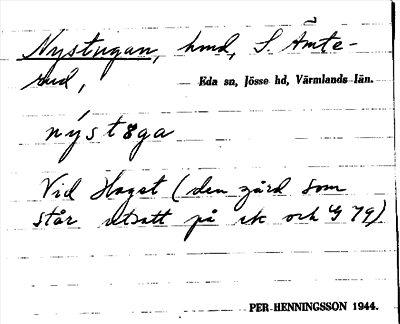 Nystugan, hmd, S. Ämte-
rud, Eda sn, Jösse hd, Värmlands län.
nýstøga
Vid Haget (den gård som
står utsatt på ek och G 79)
PER HENNINGSSON 1944.